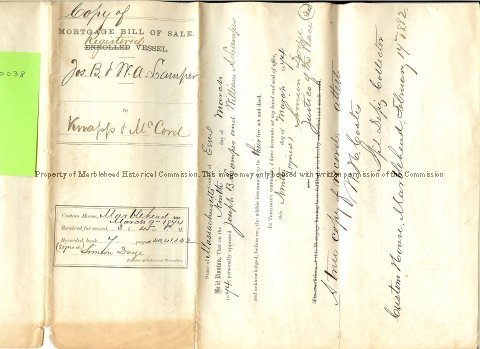 0038
Copy of
MORTGAGE BILL OF SALE.
Registered
ENROLLED VESSEL
Jos. B. & W. A. Lamper
to
Knapp & McCord
Custom House, Marblehead
March 9th 1874
Received for record 3 45 P M.
Recorded, book 7 page
(signed)
State of Massachusetts County of Essex
Be it Known, That on the Ninth day of March
1874 personally appeared Joseph B. Lamper and William A. Lamper
and acknowledged, before me, the within instrument to be their free act and deed.
In Testimony whereof, I have hereunto set my hand and seal of office,
this Ninth day of March 1874
(signed)
Justice of the Peace
A true copy of record attest
W. H. Coates
Spl Depty Collector
Custom House, Marblehead February 17th 1882.
Property of Marblehead Historical Commission. This image is not to be used without written permission of the Commission